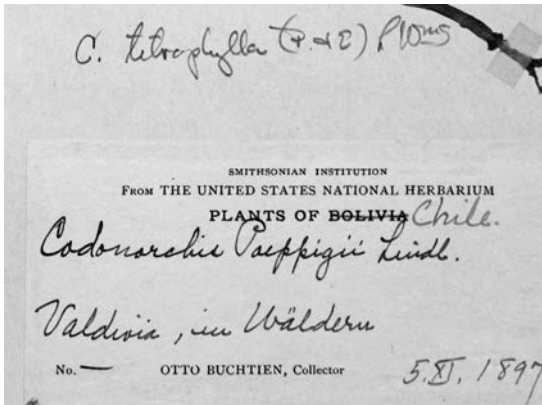 C. tetraphylla (P. & E) L Wms
SMITHSONIAN INSTITUTION
FROM THE UNITED STATES NATIONAL HERBARIUM
PLANTS OF BOLIVIA Chile.
Codonorchis Poeppigii Lindl.
Valdivia, in Wäldern
No. — OTTO BUCHTIEN, Collector 5.XI. 1897